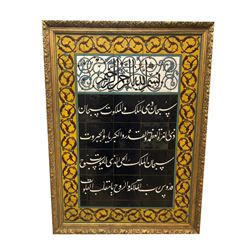 بسم الله الرحمن الرحيم
سبحان ذی الملک والملکوت سبحان
ذی العزة والعظمة والقدرة والکبریاء والجبروت
سبحان الملک الحی الذی لا یموت سبوح
قدوس رب الملائکة والروح یا مقلب